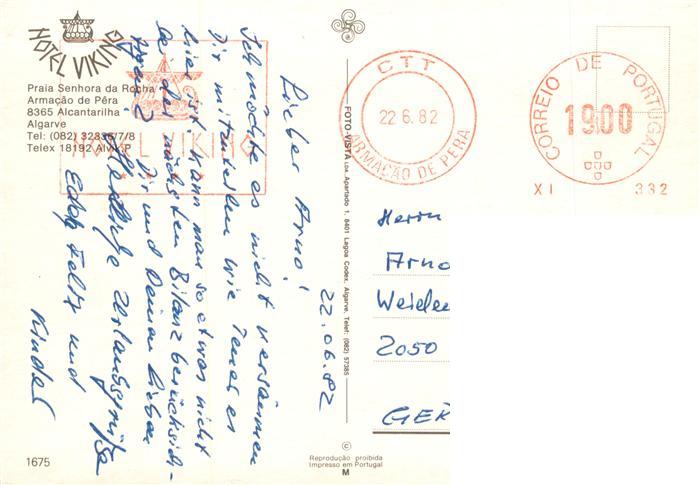 HOTEL VIKING
Praia Senhora da Rocha
Armação de Pêra
8365 Alcantarilha
Algarve
Tel: (082) 32836/7/8
Telex 18192 Alvik P
HOTEL VIKING
22.06.82
Lieber Arno!
Ich möchte es nicht versäumen
Dir mitzuteilen wie teuer es
hier ist. Kann man so etwas nicht
bei der nächsten Bilanz berücksich-
tigen?
Dir und Deiner lieben
herzliche Urlaubsgrüße
Felix und
Kinder
1675
FOTO-VISTA Lda. Apartado 1, 8401 Lagoa Codex, Algarve, Telef: (082) 57385
© Reprodução proibida
Impresso em Portugal
M
CTT
22 6. 82
ARMAÇÃO DE PERA
CORREIO DE PORTUGAL
1900
XI 332
Herrn
Arno
2050